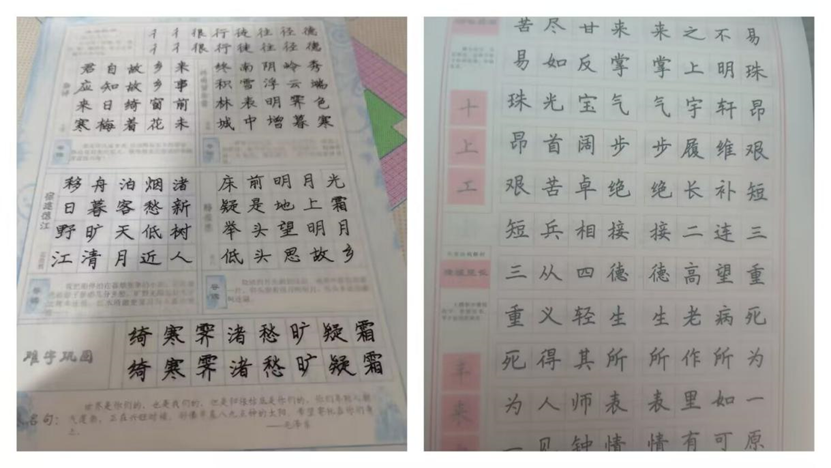 彳 彳 很 行 徒 往 径 德
彳 彳 很 行 徒 往 径 德
君 自 故 乡 来
应 知 故 乡 事
来 日 绮 窗 前
寒 梅 着 花 未
终 南 阴 岭 秀
积 雪 浮 云 端
林 表 明 霁 色
城 中 增 暮 寒
宿建德江
移 舟 泊 烟 渚
日 暮 客 愁 新
野 旷 天 低 树
江 清 月 近 人
床 前 明 月 光
疑 是 地 上 霜
举 头 望 明 月
低 头 思 故 乡
难字巩固
绮 寒 霁 渚 愁 旷 疑 霜
绮 寒 霁 渚 愁 旷 疑 霜
名句:
世界是你们的,也是我们的,但是归根结底是你们的。你们青年人朝
气蓬勃,正在兴旺时候,好像早晨八九点钟的太阳。希望寄托在你们身
上。
——毛泽东
苦 尽 甘 来 来 之 不 易
易 如 反 掌 掌 上 明 珠
珠 光 宝 气 气 宇 轩 昂
昂 首 阔 步 步 履 维 艰
艰 苦 卓 绝 绝 长 补 短
短 兵 相 接 接 二 连 三
三 从 四 德 德 高 望 重
重 义 轻 生 生 老 病 死
死 得 其 所 所 作 所 为
为 人 师 表 表 里 如 一
一 见 钟 情 情 有 可 原
十
上
工
羊